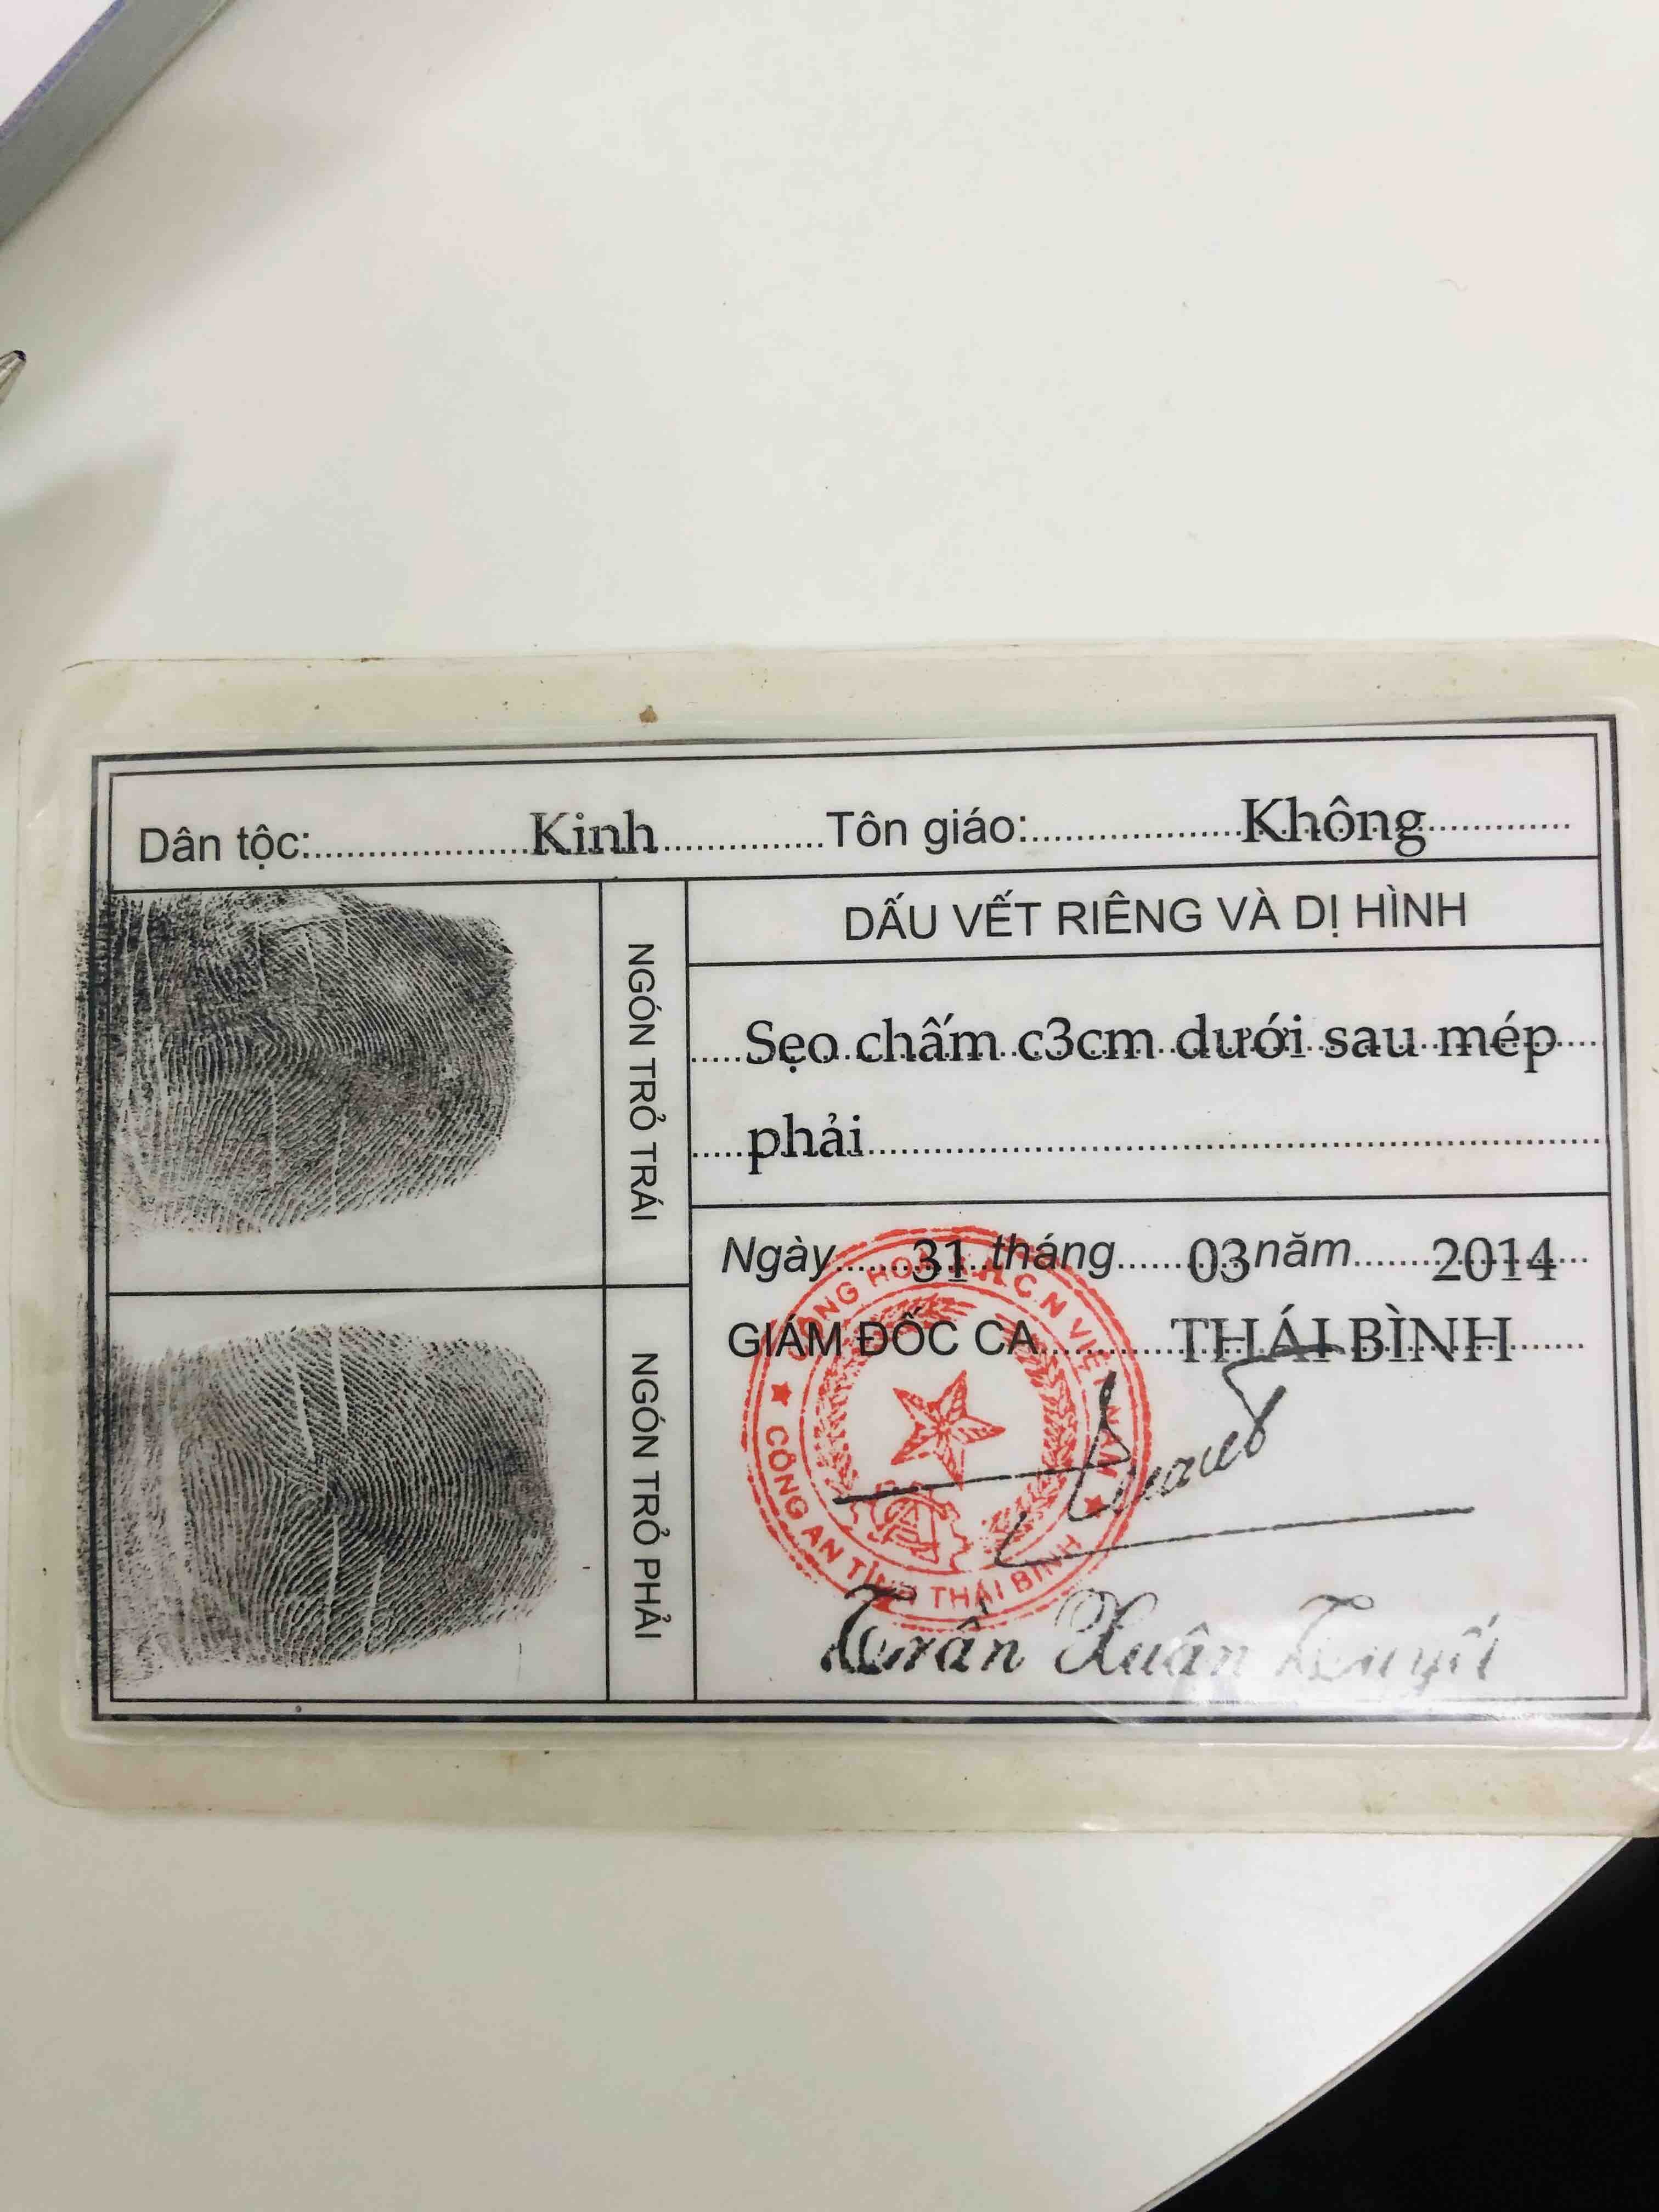 Dân tộc: Kinh Tôn giáo: Không
NGÓN TRỎ TRÁI
DẤU VẾT RIÊNG VÀ DỊ HÌNH
Sẹo chấm c3cm dưới sau mép
phải
NGÓN TRỎ PHẢI
Ngày 31 tháng 03 năm 2014
GIÁM ĐỐC CA THÁI BÌNH
CỘNG HOÀ X.H.C.N VIỆT NAM
CÔNG AN TỈNH THÁI BÌNH
Trần Xuân Tuyết